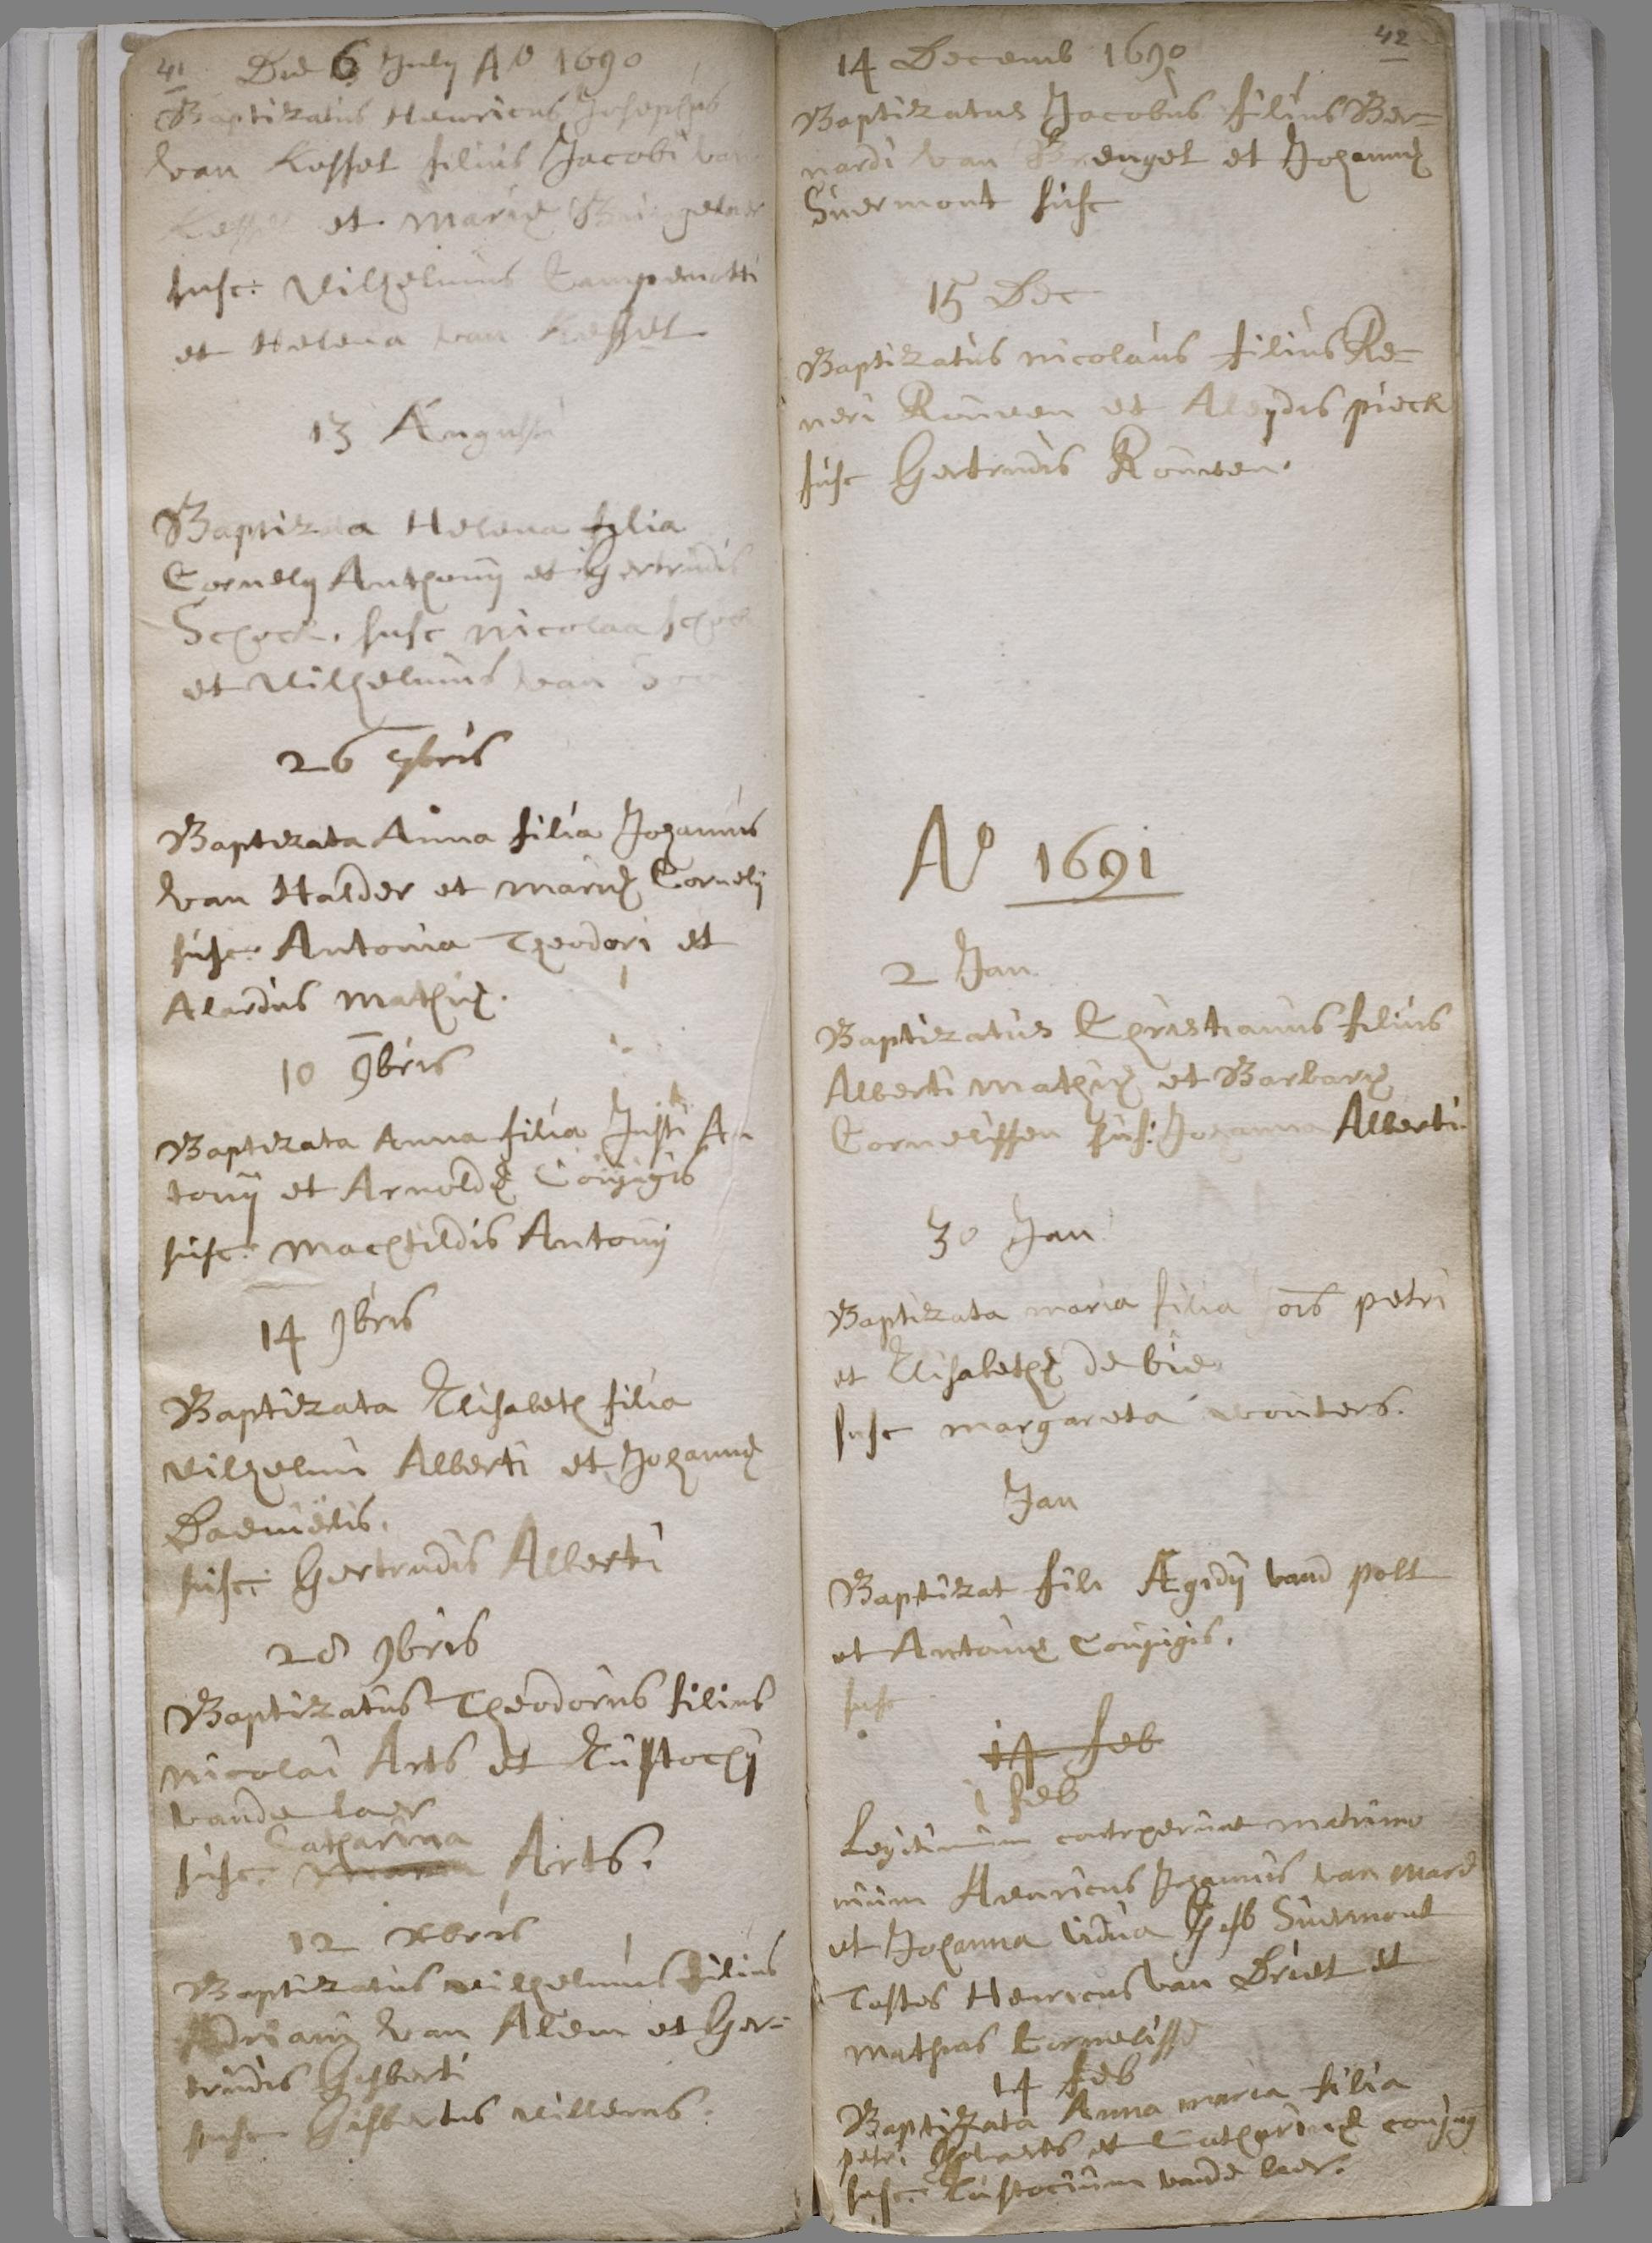 41
Die 6 July Aº 1690
Baptizatus Henricus Josephus
van Kessel filius Jacobi van
Kessel et Mariæ
susc: Wilhelmus Campenotti
et Helena van Kessel
13 Augusti
Baptizata Helena filia
Cornely Anthonij et Gertrudis
Schock. susc Nicolaa schock
et Wilhelmus van
26 7bris
Baptizata Anna filia Johannis
van Halder et Mariæ Cornelij
susc: Antonia Theodori et
Alardus Mathiæ.
10 9bris
Baptizata Anna filia Justi An
tonij et Arnoldæ Conjugis
susc: Machtildis Antonij
14 9bris
Baptizata Elisabeth filia
Wilhelmi Alberti et Johannæ
Daniëlis.
susc: Gertrudis Alberti
28 9bris
Baptizatus Theodorus filius
Nicolai Arts et Eustochij
vande laer
Catharina
susc. Maria Arts.
12 Xbris
Baptizatus Wilhelmus filius
Adriani van Alem et Ger=
trudis Gisberti
susc Gisbertus Willems.
42
14 Decemb 1690
Baptizatus Jacobus filius Ber=
nardi van Brengel et Johannæ
Suermont susc
15 Dec
Baptizatus Nicolaus filius Re=
neri Rouwen et Aleydis pieck
susc Gertrudis Rouwen.
Aº 1691
2 Jan
Baptizatus Christianus filius
Alberti Mathiæ et Barbaræ
Cornelissen sus: Johanna Alberti.
30 Jan
Baptizata Maria filia Jois petri
et Elisabethæ de bie
susc Margareta wouters.
Jan
Baptizat fili Ægidij vand poll
et Antoniæ Conjugis.
susc
17 feb
1 feb
Legitimum contraxerunt matrimo
nium Henricus Johannis van Mard
et Johanna vidua Gisb Suermont
Testes Henricus van Driet et
Mathias Cornelisse
14 feb
Baptizata Anna Maria filia
petri et Catharinæ conjug
susc: Eustochium vande laer.